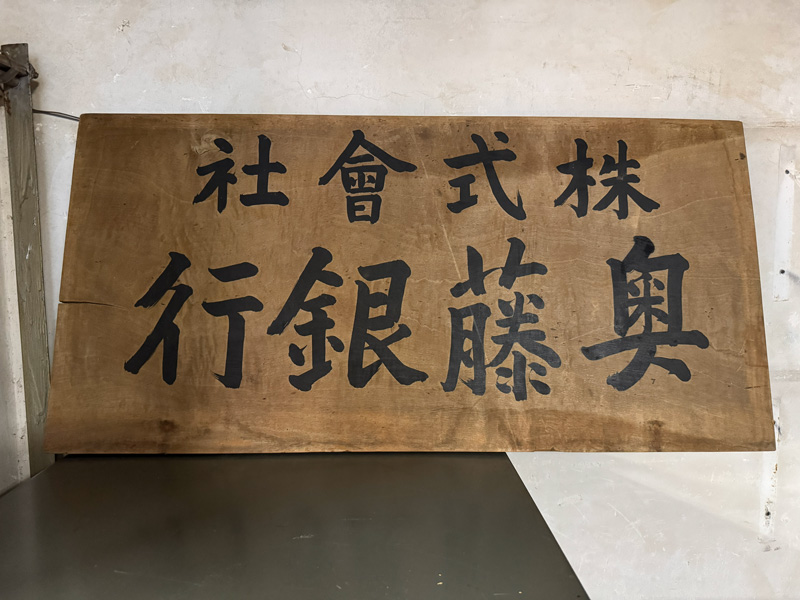 株式會社
奥藤銀行